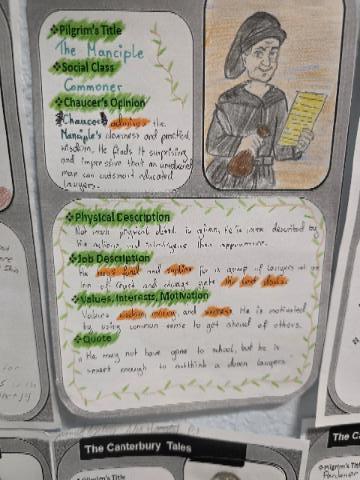 ❖Pilgrim's Title
The Manciple
❖Social Class
Commoner
❖Chaucer's Opinion
Chaucer admires the
Manciple's cleverness and practical
wisdom. He finds it surprising
and impressive that an uneducated
man can outsmart educated
lawyers.
❖Physical Description
Not much physical detail is given, he is more described by
his actions and intelligence than appearance.
❖Job Description
He buys food and supplies for a group of lawyers at an
inn of court and always gets the best deals.
❖Values, Interests, Motivation
Values wisdom money and success. He is motivated
by using common sense to get ahead of others.
❖Quote
He may not have gone to school, but he is
smart enough to outthink a dozen lawyers.
The Canterbury Tales
❖Pilgrim's Title
The Ca
Pilgrim's Title
Pardoner